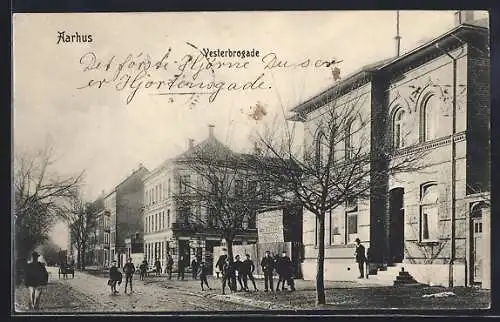 Aarhus
Vesterbrogade
Det første Hjørne Du ser
er Hjortensgade.